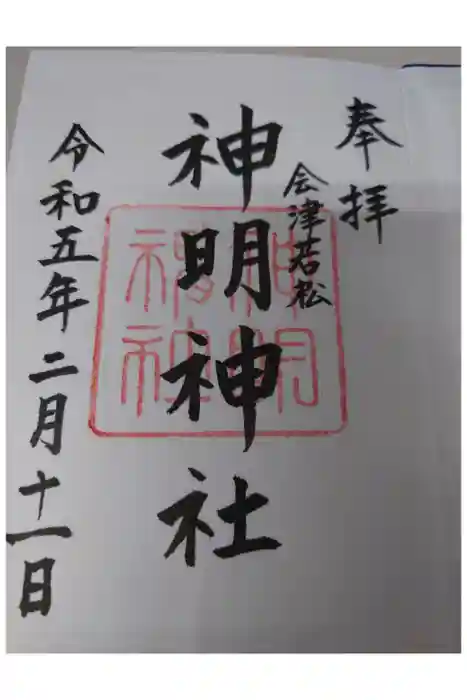 奉拝
会津若松
神明神社
令和五年二月十一日